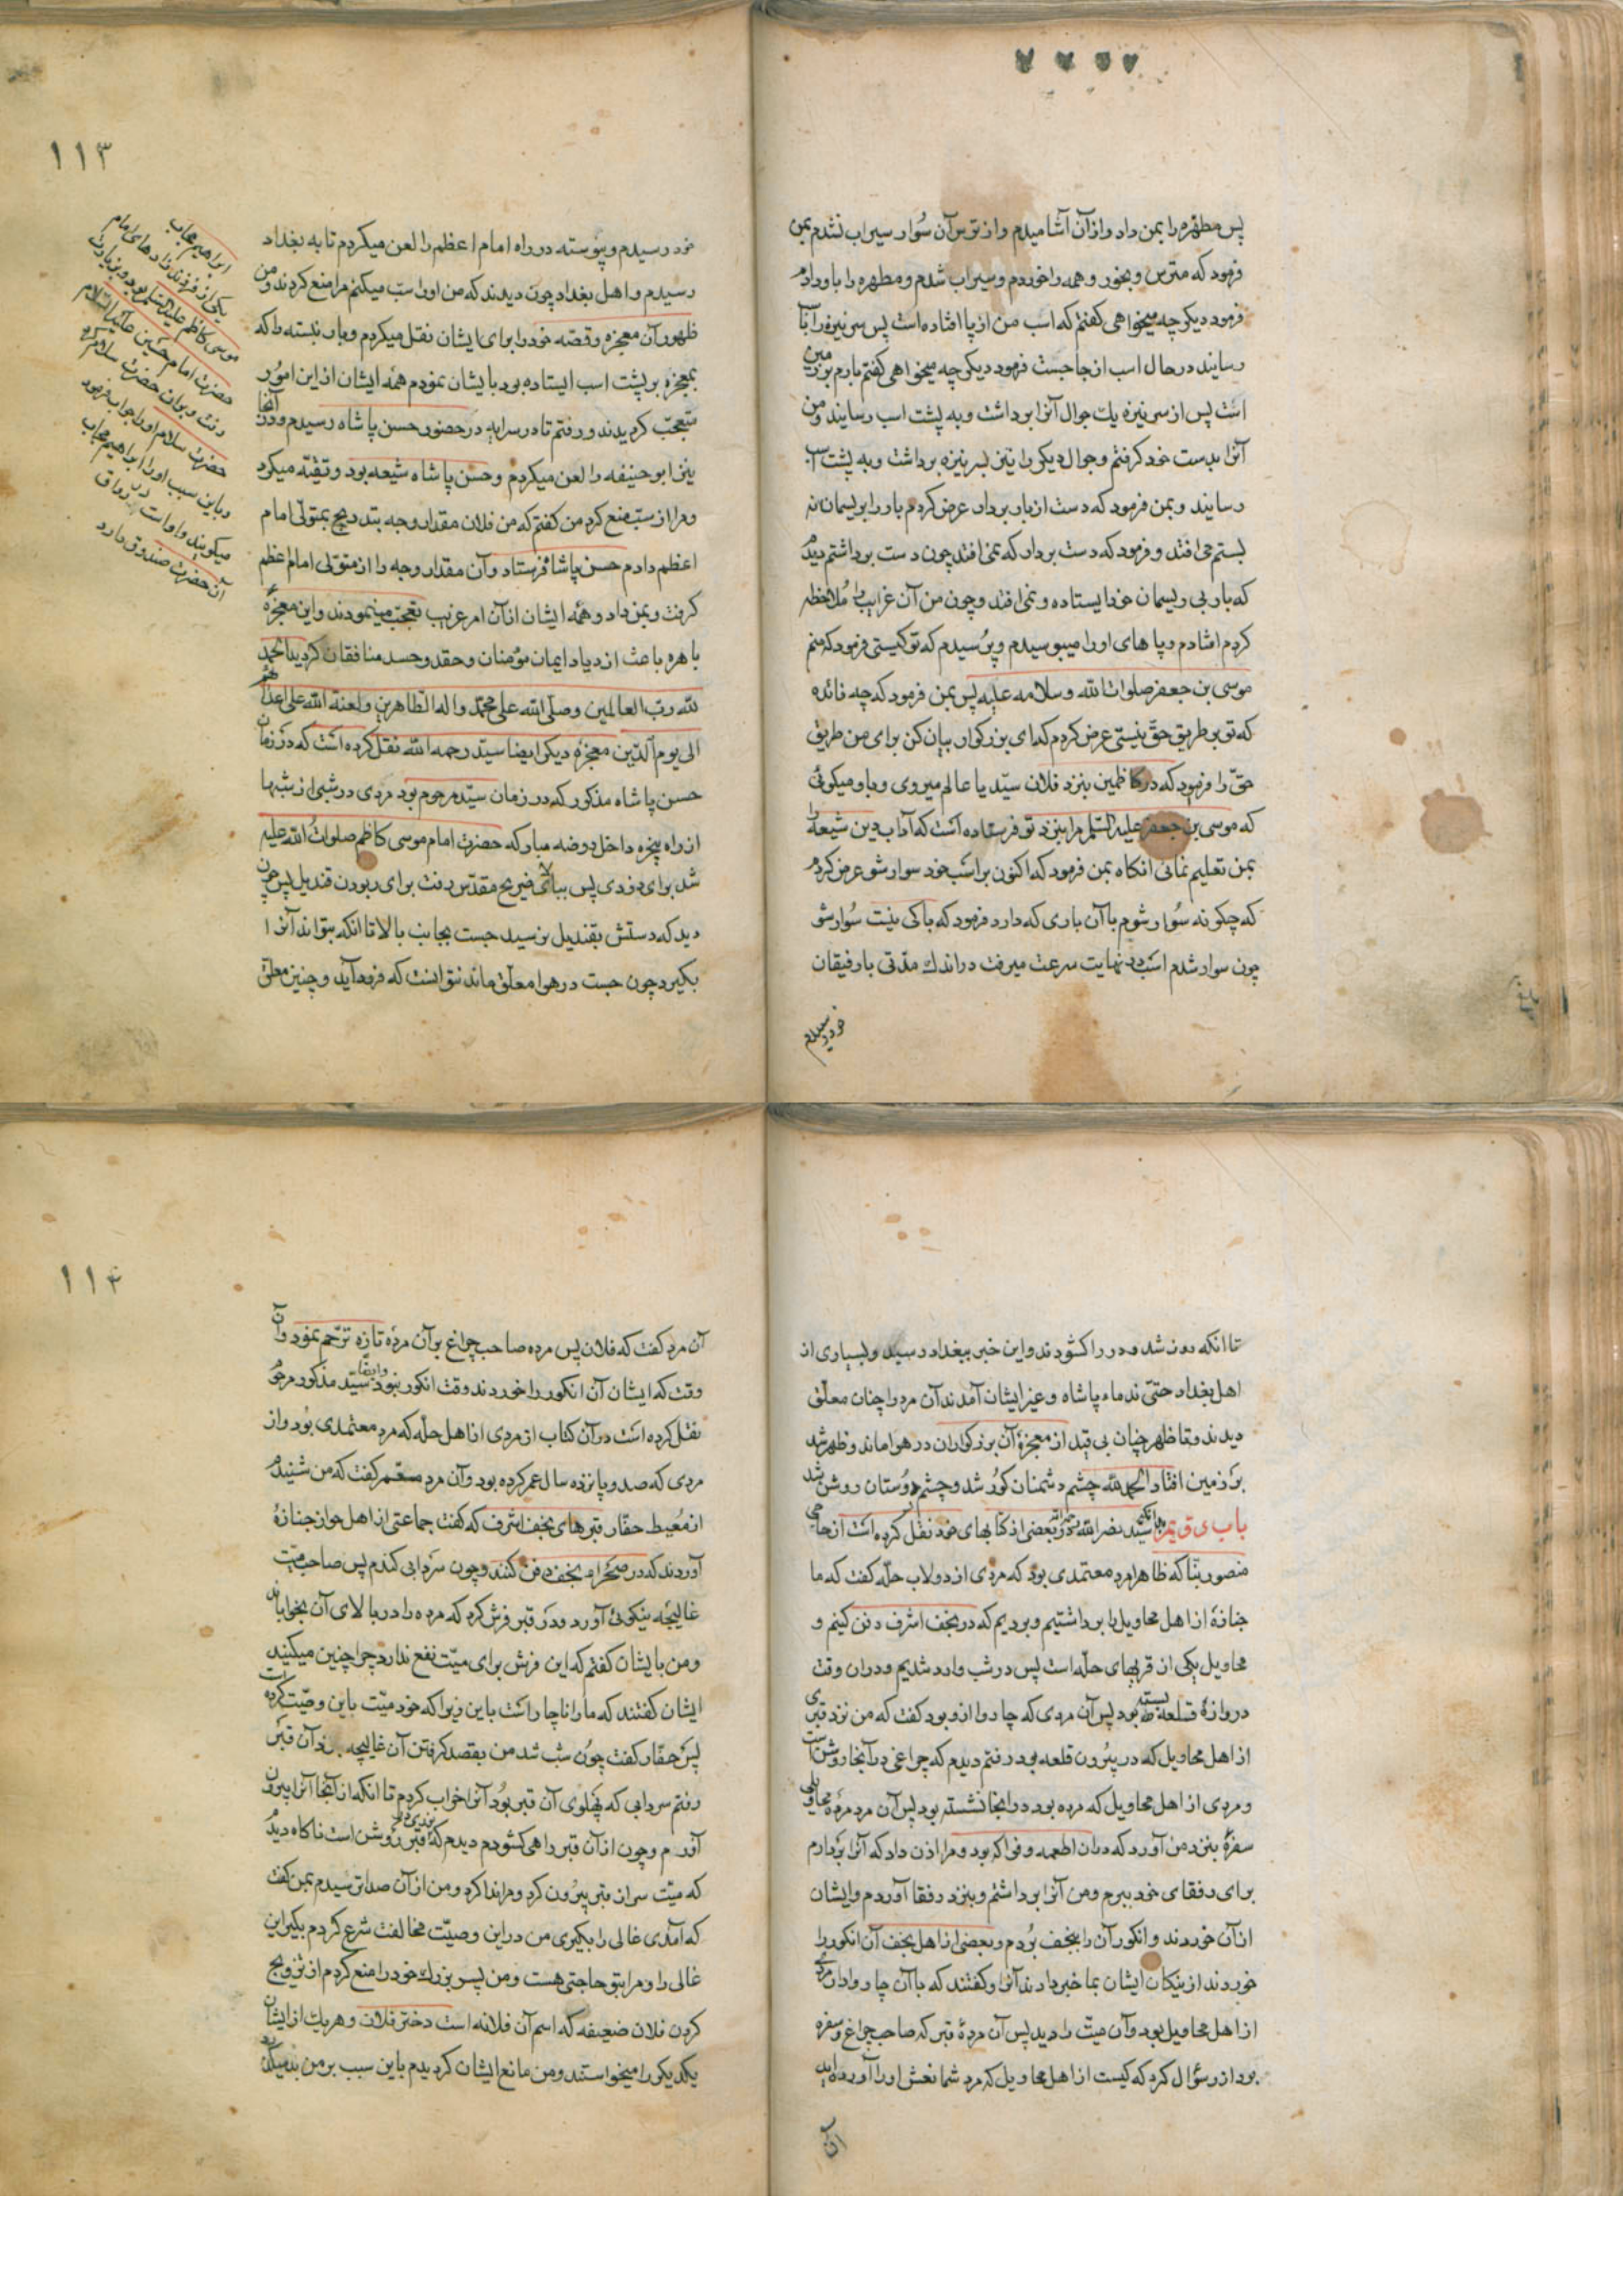 پس مطهره را بمن داد و از آن آشامیدم و از ترس آن سوار سیراب نشدم بمن
فرمود که مترس و بخور و همه را خوردم و سیراب شدم و مطهره را باو دادم
فرمود دیگر چه میخواهی گفتم که اسب من از پا افتاده است پس سر نیزه را بآن
رسانید در حال اسب از جا جست فرمود دیگر چه میخواهی گفتم بارم بر زمین
است پس از سر نیزه یک جوال آنرا برداشت و به پشت اسب رسانید و من
آنرا بدست خود گرفتم و جوال دیگر را نیز بسر نیزه برداشت و به پشت اسب
رسانید و بمن فرمود که دست از بار بردار عرض کردم بار را بریسمان نه
بستم می افتد و فرمود که دست بردار که نمی افتد چون دست برداشتم دیدم
که بار بی ریسمان خود ایستاده و نمی افتد و چون من آن غرایب را ملاحظه
کردم افتادم و پا های او را میبوسیدم و پرسیدم که تو کیستی فرمود که منم
موسی بن جعفر صلوات الله و سلامه علیه پس بمن فرمود که چه فائده
که تو بر طریق حق نیستی عرض کردم که ای بزرگوار بیان کن برای من طریق
حق را فرمود که در کاظمین بنزد فلان سید یا عالم میروی و باو میگوئی
که موسی بن جعفر علیه السلم مرا بنزد تو فرستاده است که آداب دین شیعه را
بمن تعلیم نمائی انگاه بمن فرمود که اکنون بر اسب خود سوار شو عرض کردم
که چگونه سوار شوم با آن باری که دارد فرمود که باکی نیست سوار شو
چون سوار شدم اسب در نهایت سرعت میرفت در اندک مدتی با رفیقان
خود رسیدم
١١٣
خود رسیدم و پیوسته در راه امام اعظم را لعن میکردم تا به بغداد
رسیدم و اهل بغداد چون دیدند که من او را سب میکنم مرا منع کردند و من
ظهور آن معجزه و قصه خود را برای ایشان نقل میکردم و بار نبسته را که
بمعجزه بر پشت اسب ایستاده بود بایشان نمودم همه ایشان از این امور
متعجب گردیدند و رفتم تا در سرایه در حضور حسن پاشاه رسیدم و در آنجا
نیز ابو حنیفه را لعن میکردم و حسن پاشاه شیعه بود و تقیه میکرد
و مرا از سب منع کرد من گفتم که من فلان مقدار وجه بتدریج بمتولی امام
اعظم دادم حسن پاشا فرستاد و آن مقدار وجه را از متولی امام اعظم
گرفت و بمن داد و همه ایشان از آن امر غریب تعجب مینمودند و این معجزه
باهره باعث ازدیاد ایمان مؤمنان و حقد و حسد منافقان گردید الحمد
لله رب العالمین وصلی الله علی محمد واله الطاهرین ولعنة الله علی اعدائهم
الی یوم الدین معجزه دیگر ایضا سید رحمه الله نقل کرده است که در زمان
حسن پاشاه مذکور که در زمان سید مرحوم بود مردی در شبی از شبها
از راه پنجره داخل روضه مبارکه حضرت امام موسی کاظم صلوات الله علیه
شد برای دزدی پس ببالای ضریح مقدس رفت برای ربودن قندیل پس چون
دید که دستش بقندیل نرسید جست بجانب بالا تا انکه بتواند آنرا
بگیرد چون جست در هوا معلق ماند نتوانست که فرود آید و چنین معلق
ابراهیم مجاب
یکی از فرزند زادهای امام
موسی کاظم علیه السلم بود و بزیارت
حضرت امام حسین علیه السلام
رفت و بر آن حضرت سلام کرد
حضرت سلام او را جواب فرمود
و باین سبب او را ابراهیم مجاب
میگویند و او است در رواق
آن حضرت صندوق دارد
تا انکه روز شد و در را کشودند و این خبر ببغداد رسید و بسیاری از
اهل بغداد حتی ندماء پاشاه و غیر ایشان آمدند آن مرد را چنان معلق
دیدند و تا ظهر چنان بی قید از معجزه آن بزرگواران در هوا ماند و ظهر شد
بر زمین افتاد الحمد لله چشم دشمنان کور شد و چشم دوستان روشن شد
باب سید نصر الله در بعضی از کتابهای خود نقل کرده است از حاجی
منصور بنا که ظاهرا مرد معتمدی بود که مردی از دولاب حله گفت که ما
جنازهٔ از اهل محاویل را برداشتیم و بردیم که در نجف اشرف دفن کنیم و
محاویل یکی از قریهای حله است پس در شب وارد شدیم و در ان وقت
دروازهٔ قلعه بسته بود پس آن مردی که چاروا از او بود گفت که من نزد قبری
از اهل محاویل که در بیرون قلعه بود رفتم دیدم که چراغی در آنجا روشن است
و مردی از اهل محاویل که مرده بود در انجا نشسته بود پس آن مرد مردهٔ محاویلی
سفرهٔ بنزد من آورد که در ان اطعمه و فواکه بود و مرا اذن داد که آنرا بردارم
برای رفقای خود ببرم و من آنرا برداشتم و بنزد رفقا آوردم و ایشان
از آن خوردند و انکور آن را بنجف بردم و بعضی از اهل نجف آن انکور را
خوردند از نیکان ایشان بما خبر دادند آنرا و گفتند که با آن چاروادار مردی
از اهل محاویل بود و آن میت را دید پس آن مردهٔ قبر که صاحب چراغ و سفره
بود از او سؤال کرد که کیست از اهل محاویل که مرد شما نعش او را آورده اید
آن
١١٤
آن مرد گفت که فلان پس مرده صاحب چراغ بر آن مرده تازه ترحم نمود و آن
وقت که ایشان آن انکور را خوردند وقت انکور نبود و ایضا سید مذکور مرحوم
نقل کرده است در آن کتاب از مردی از اهل حله که مرد معتمدی بود و از
مردی که صد و پانزده سال عمر کرده بود و آن مرد معمر گفت که من شنیدم
از معیط حفار قبرهای نجف اشرف که گفت جماعتی از اهل حواز جنازهٔ
آوردند که در صحرای نجف دفن کنند و چون سردابی کندم پس صاحب میت
غالیچه نیکوئی آورد و در قبر فرش کرد که مرده را در بالای آن بخواباند
و من بایشان گفتم که این فرش برای میت نفع ندارد چرا چنین میکنید
ایشان گفتند که ما را ناچار است باین زیرا که خود میت باین وصیت کرده است
پس حفار گفت چون شب شد من بقصد گرفتن آن غالیچه نزد آن قبر
رفتم سردابی که پهلوی آن قبر بود آنرا خراب کردم تا انکه از آنجا آنرا بیرون
آورم و چون از آن قبر راهی کشودم دیدم که قبر روشن است ناگاه دیدم
که میت سر از قبر بیرون کرد و مرا ندا کرد و من از آن صدا ترسیدم بمن گفت
که آمدی غالی را بگیری من در این وصیت مخالفت شرع کردم بگیر این
غالی را و مرا بتو حاجتی هست و من پسر بزرگ خود را منع کردم از تزویج
کردن فلان ضعیفه که اسم آن فلانه است دختر فلان و هر یک از ایشان
یکدیگر را میخواستند و من مانع ایشان گردیدم باین سبب بر من